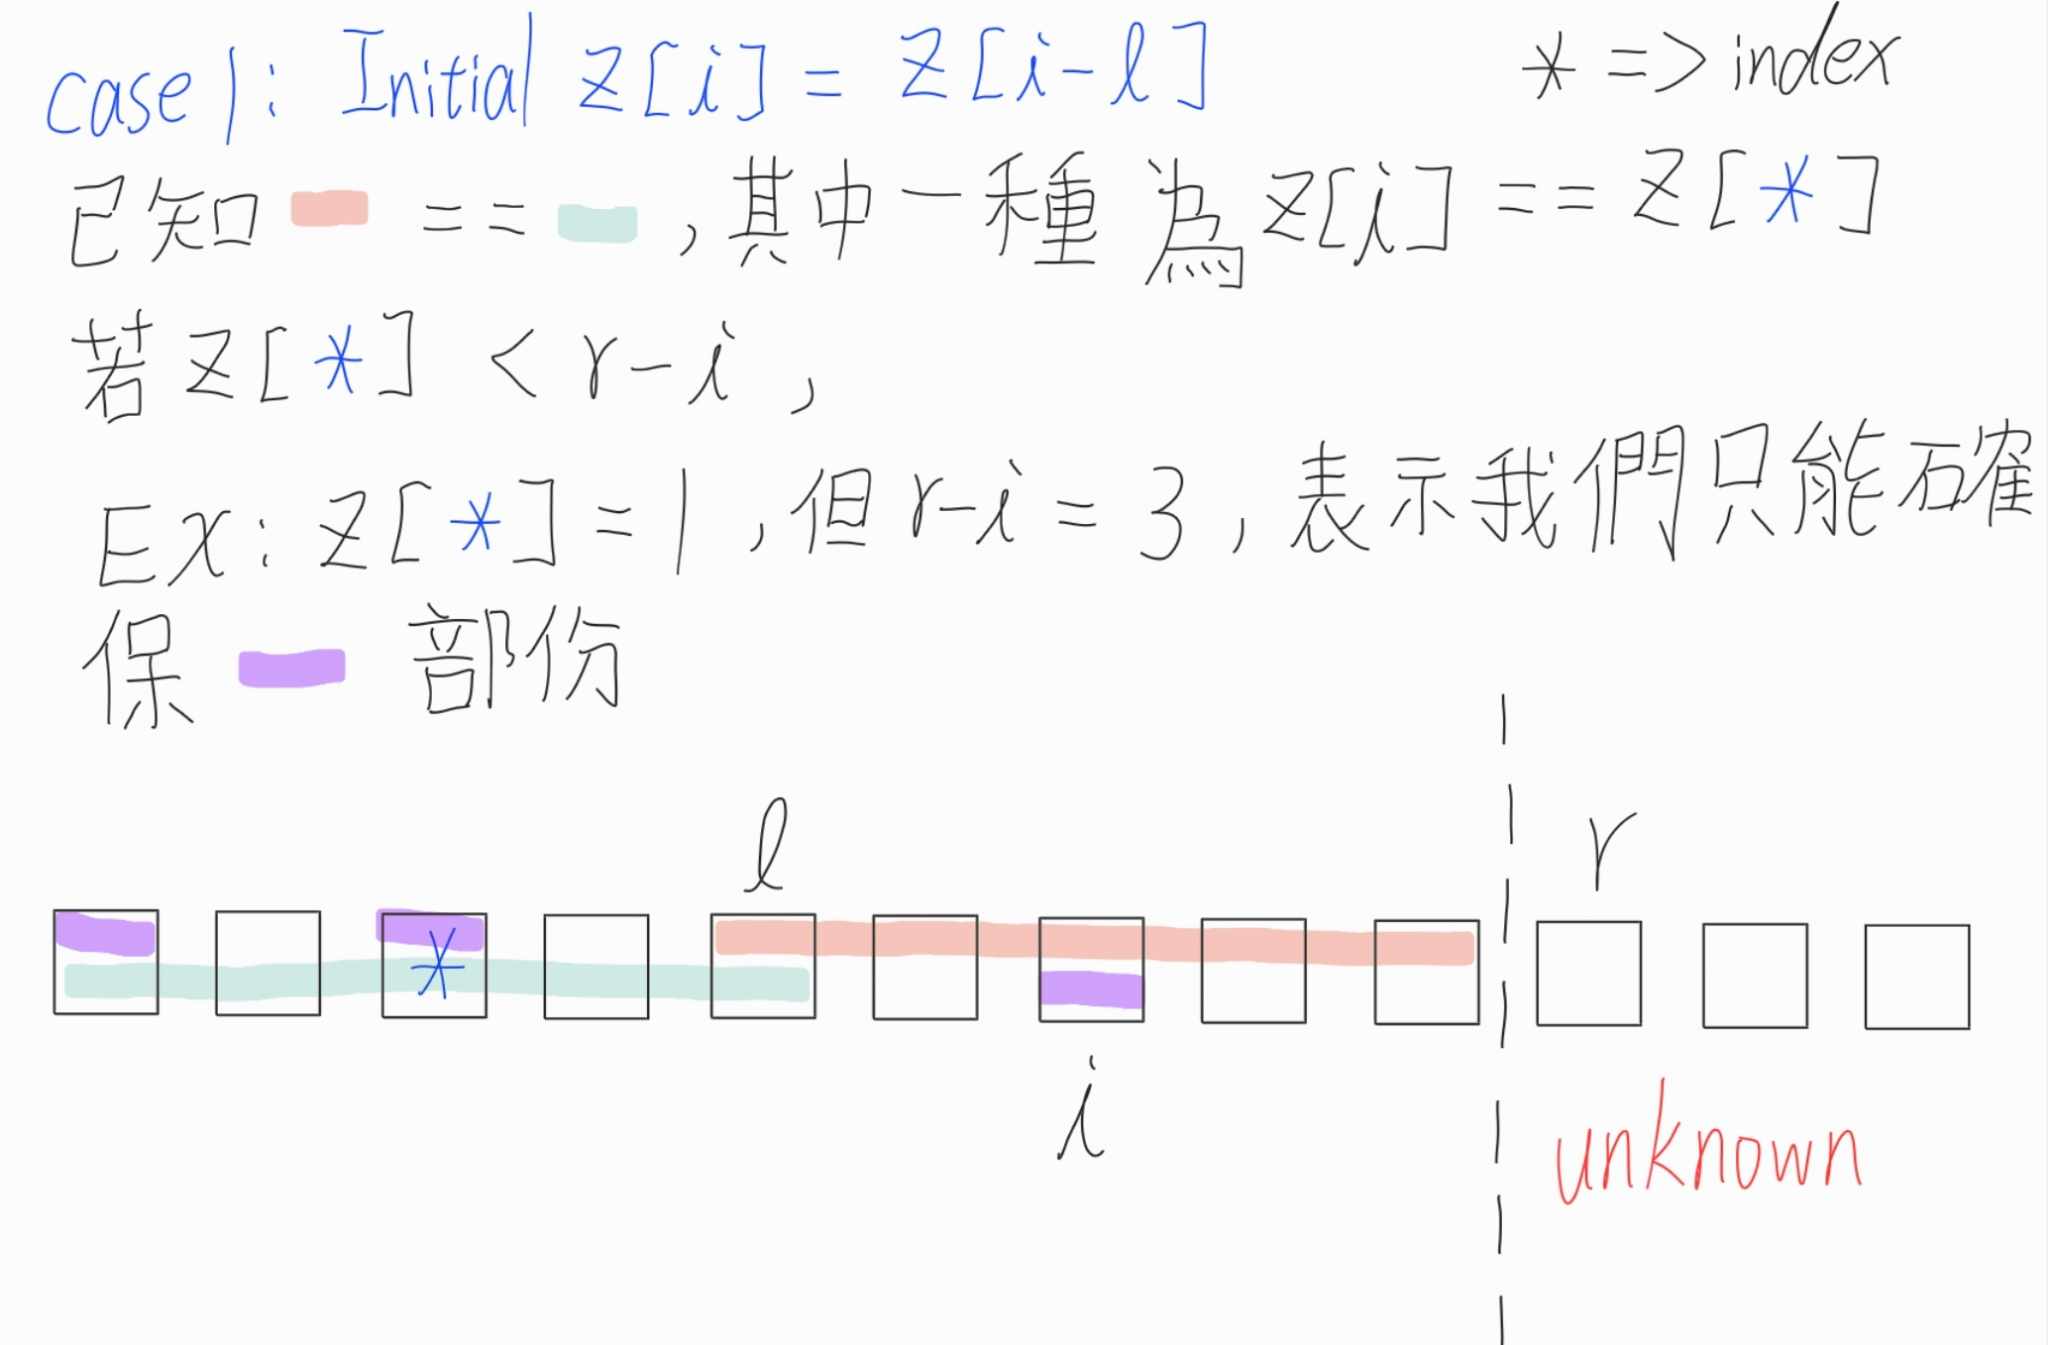 case 1: Initial Z[i] = Z[i-l]
* => index
已知 == , 其中一種為 Z[i] == Z[*]
若 Z[*] < r-i ,
Ex: Z[*] = 1 , 但 r-i = 3 , 表示我們只能確
保 部份
l
r
*
i
unknown